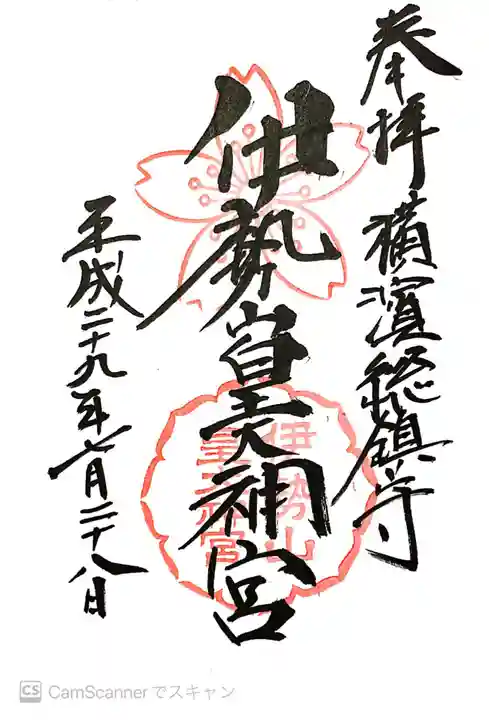 奉拝 横濱総鎮守
伊勢山皇大神宮
平成二十九年七月二十八日
伊勢山
皇大神宮
CS CamScanner でスキャン